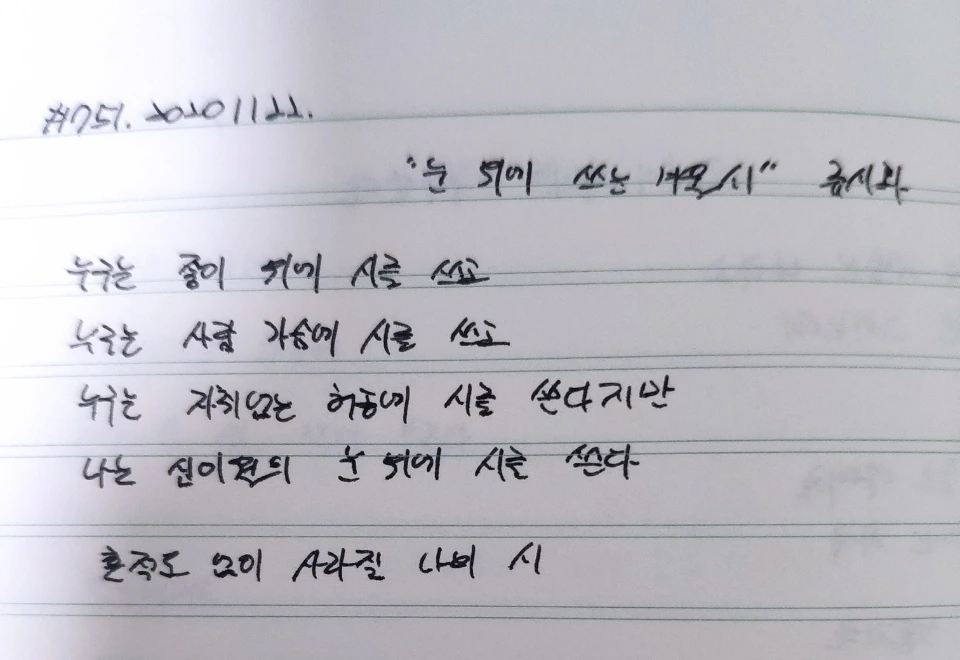 #751. 20201122.
"눈 위에 쓰는 겨울 시" 류시화
누구는 종이 위에 시를 쓰고
누구는 사람 가슴에 시를 쓰고
누구는 자취없는 허공에 시를 쓴다지만
나는 십이월의 눈 위에 시를 쓴다
흔적도 없이 사라질 나의 시